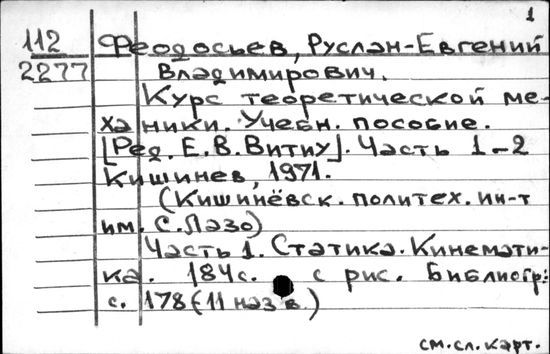 1
112
2277
Феодосьев, Руслан-Евгений
Владимирович.
Курс теоретической ме-
ханики. Учебн. пособие.
[Ред. Е.В. Витиу]. Часть 1-2
Кишинев, 1971.
(Кишинёвск. политех. ин-т
им. С. Лазо)
Часть 1. Статика. Кинемати-
ка. 184с. с рис. Библиогр:
с. 178 (11 назв.)
см. сл. карт.